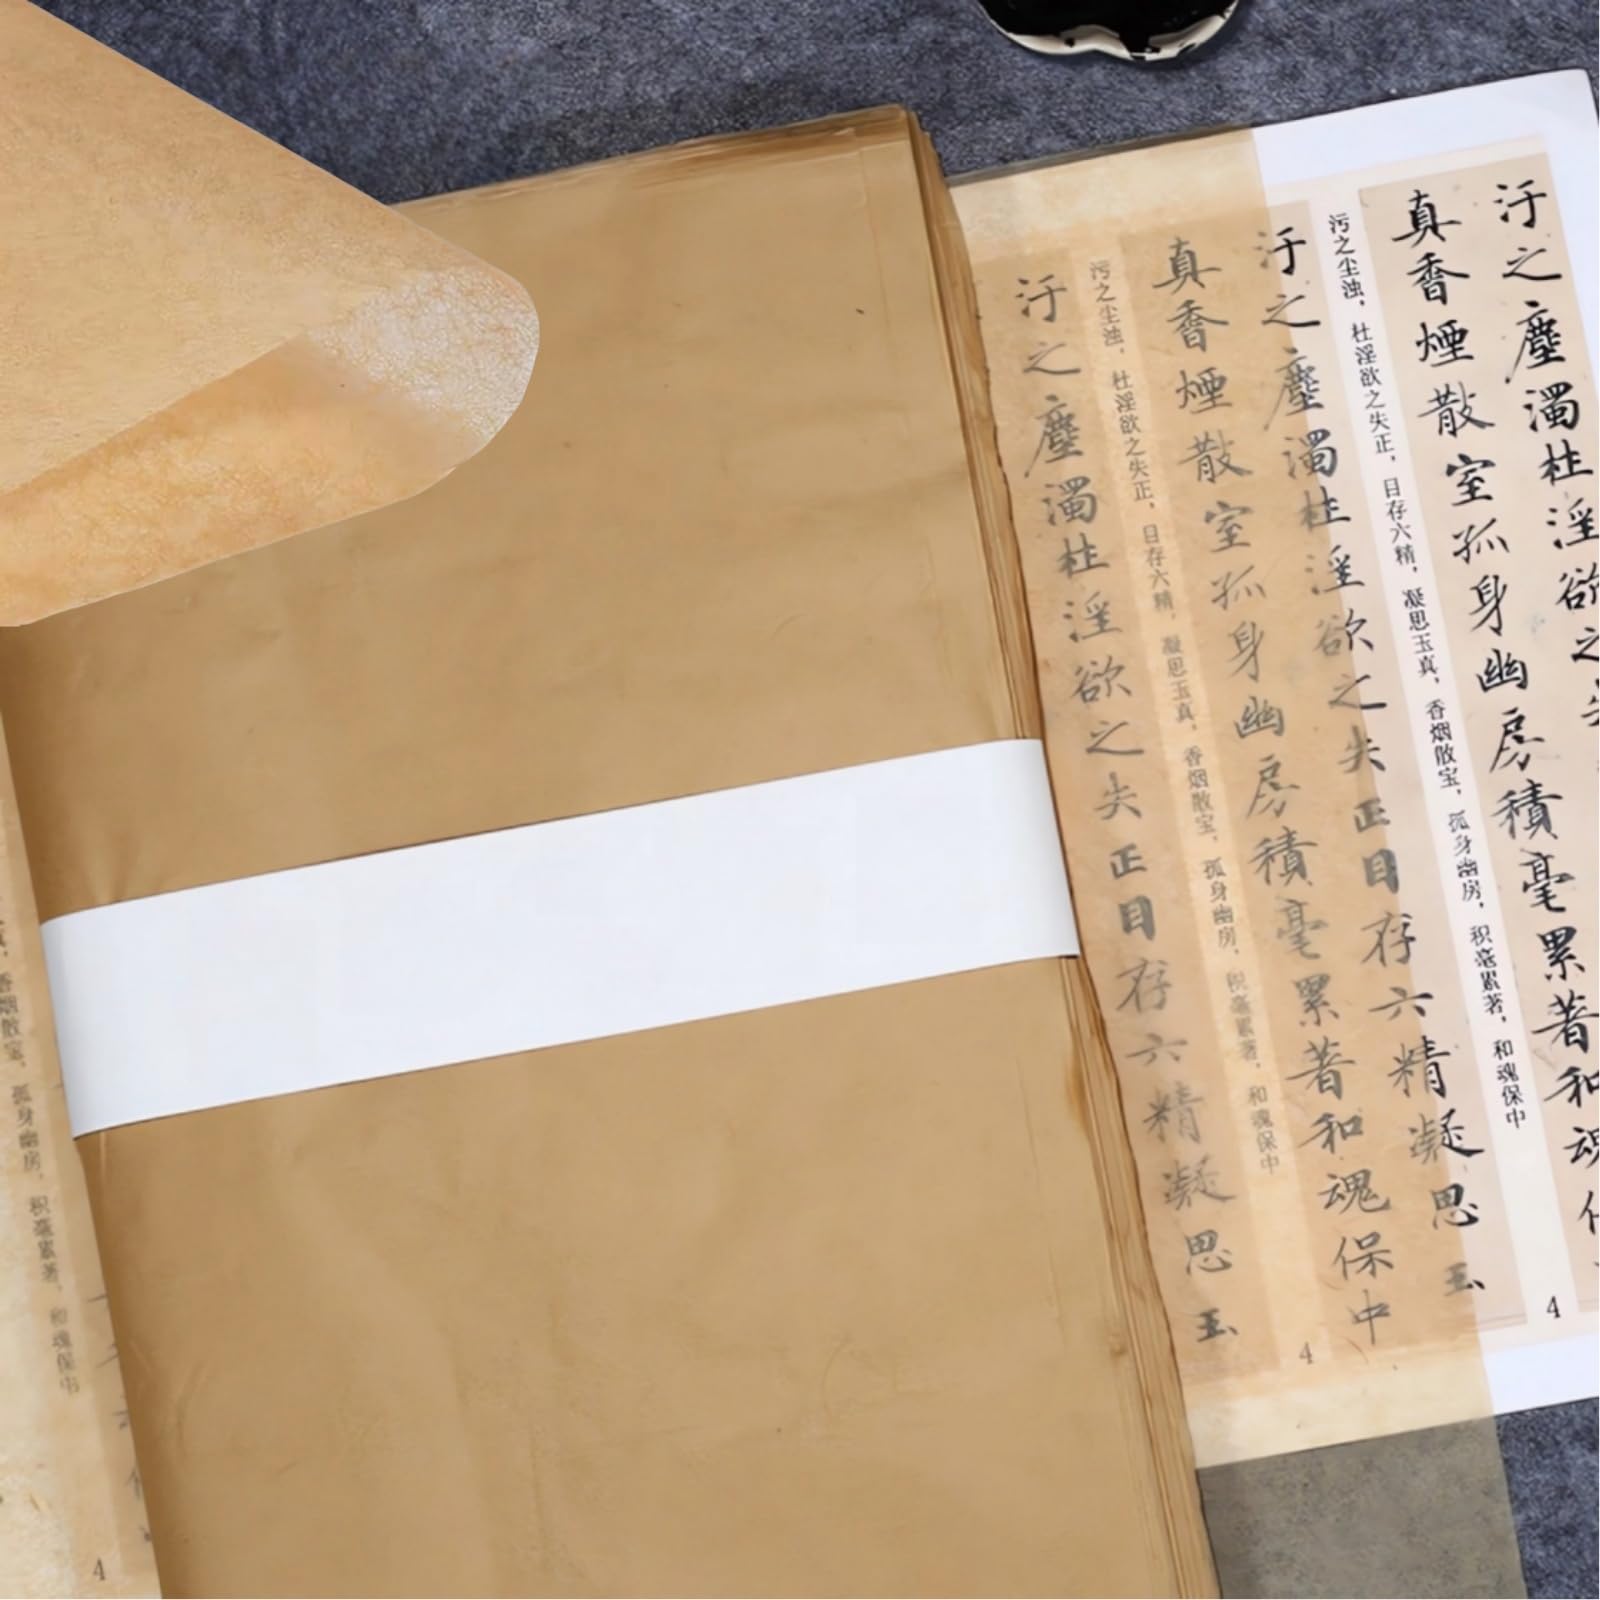 汙之塵濁杜淫欲之
真香煙散室孤身幽房積毫累著和魂
污之尘浊，杜淫欲之失正，目存六精，凝思玉真，香烟散宝，孤身幽房，积毫累著，和魂保中
4
汙之塵濁杜淫欲之失正目存六精凝思玉
真香煙散室孤身幽房積毫累著和魂保中
污之尘浊，杜淫欲之失正，目存六精，凝思玉真，香烟散宝，孤身幽房，积毫累著，和魂保中
4
汙之塵濁杜淫欲之失正目存六精凝思玉
香烟散宝，孤身幽房，积毫累著，和魂保中
4